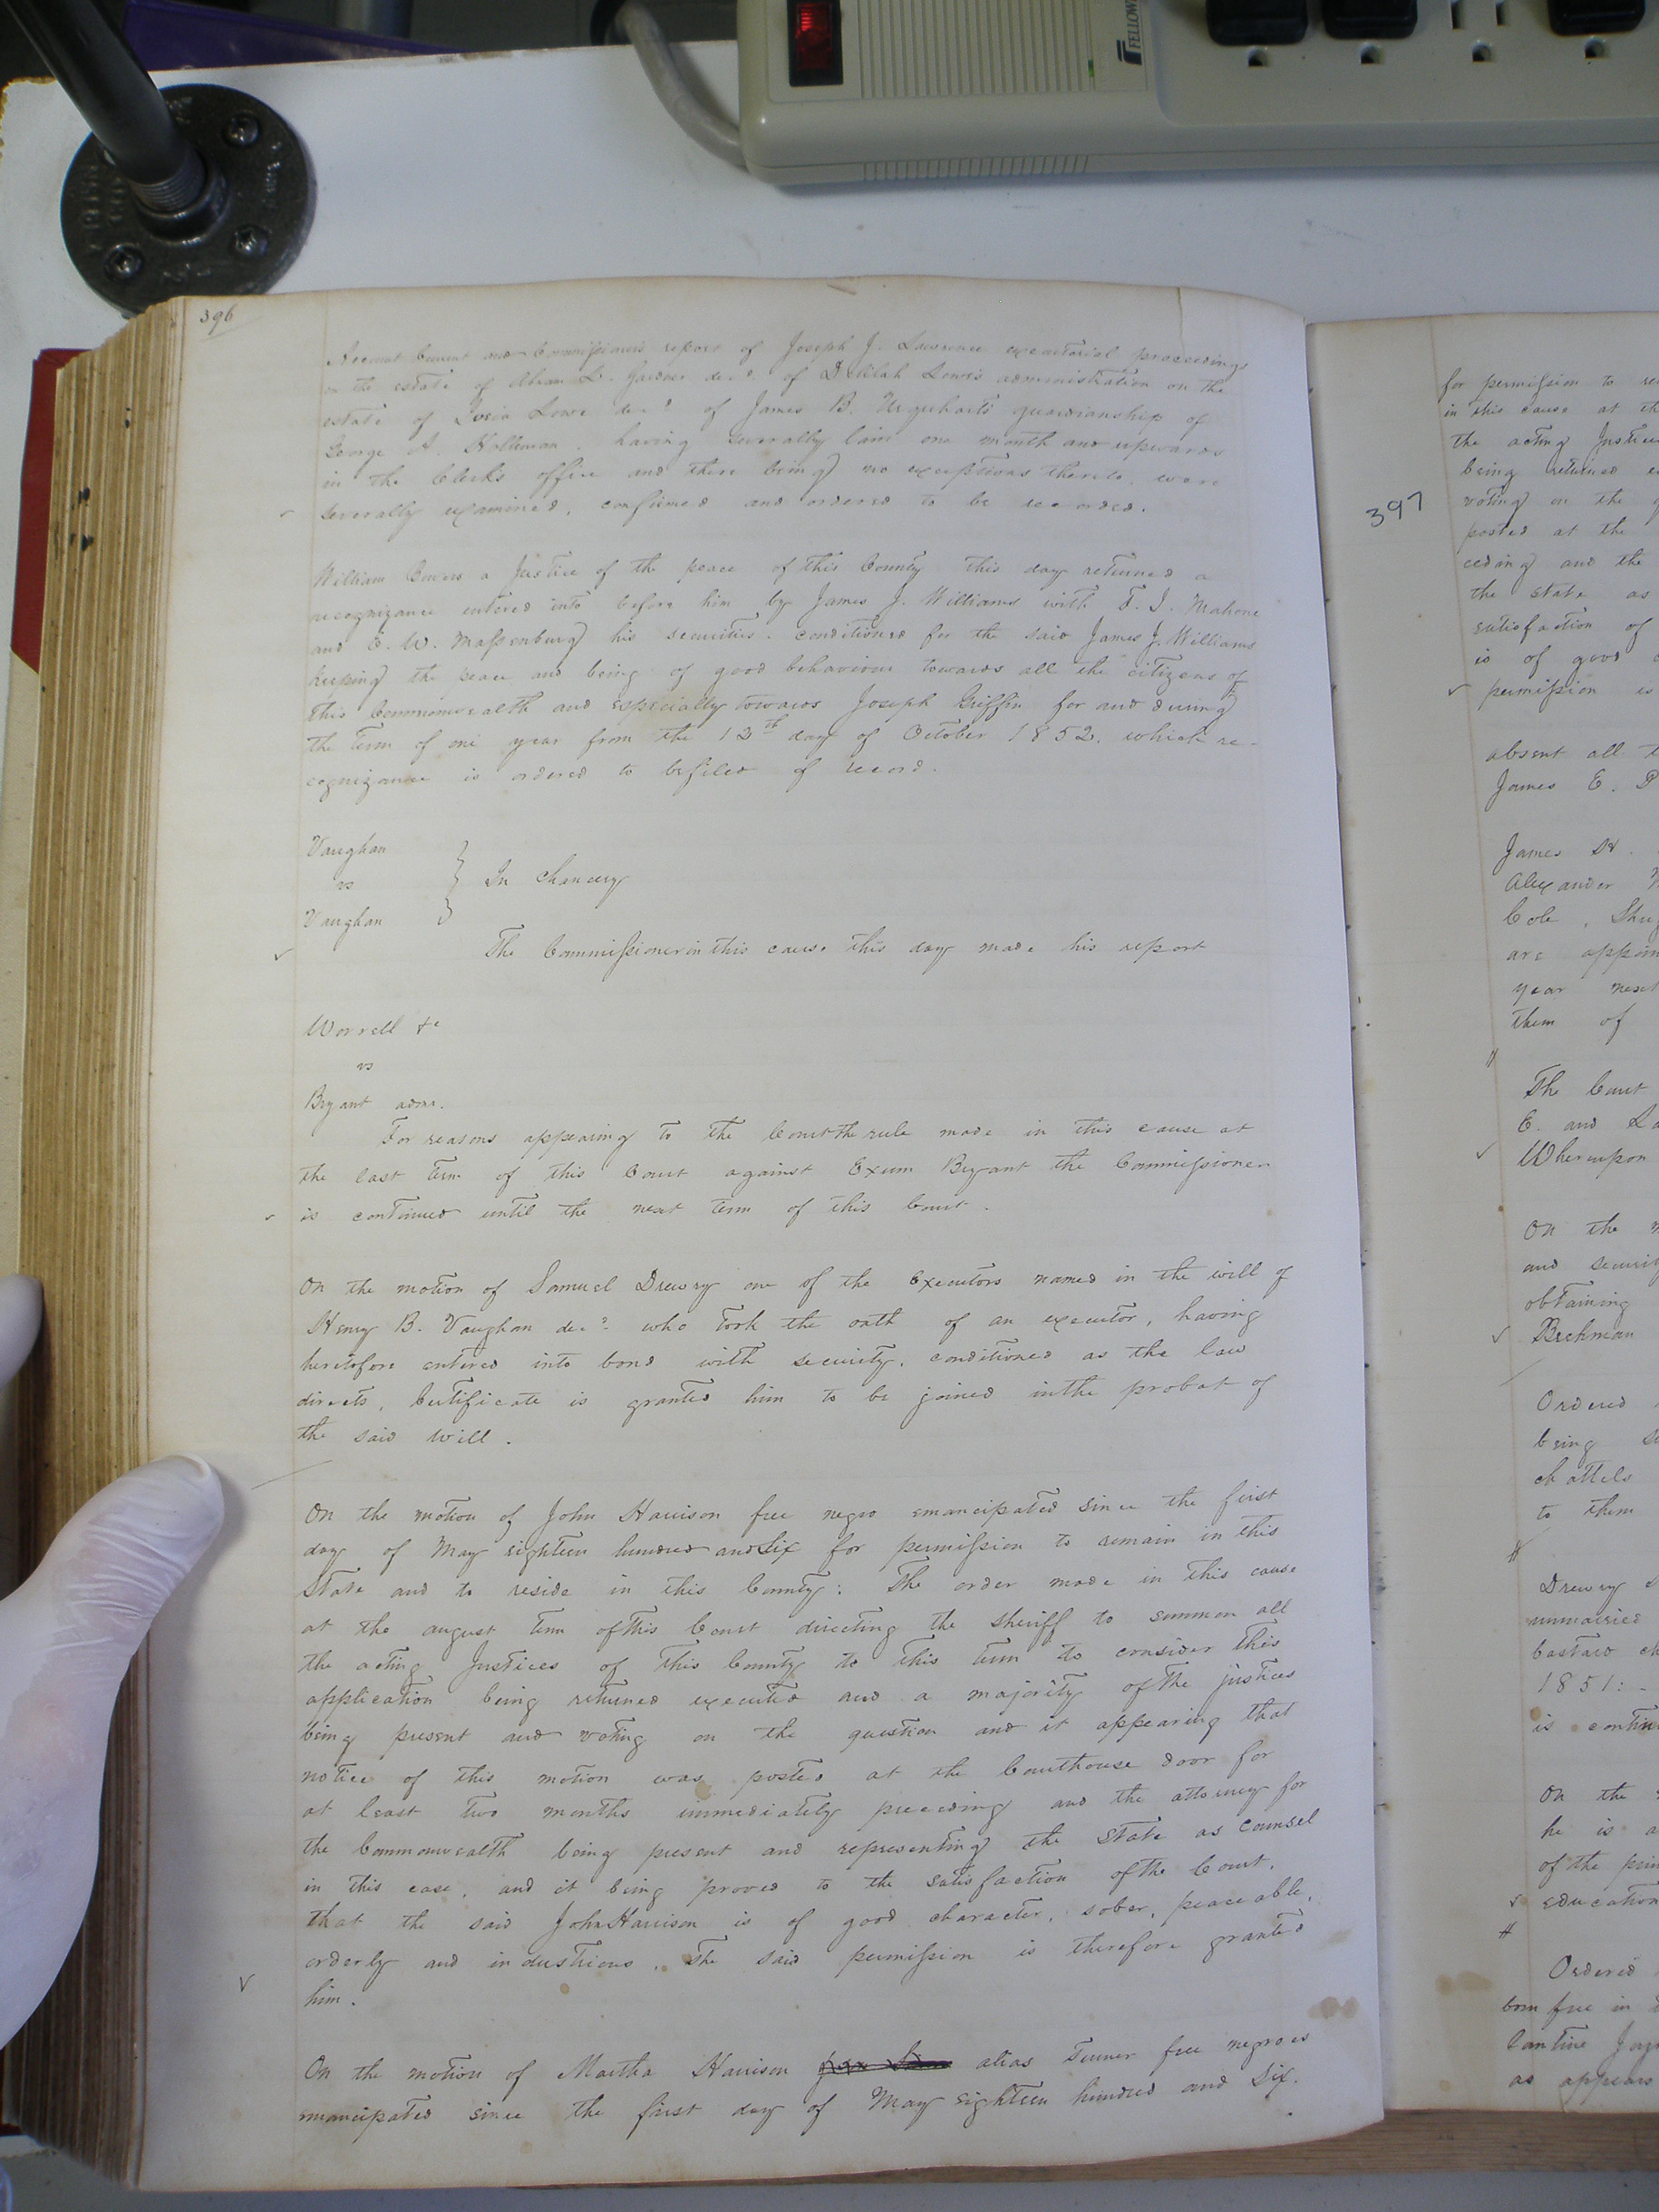 FELLOW
396
Account Current and Commissioners report of Joseph J. Lawrence executorial proceedings
on the estate of Abram L. Gardner dec.d of Delilah Lowe's administration on the
estate of Josia Lowe dec.d of James B. Urquharts guardianship of
George A. Holleman, having severally lain one month and upwards
in the Clerks office and there being no exceptions thereto, were
severally examined, confirmed and ordered to be recorded.
William a Justice of the peace of this County this day returned a
recognizance entered into before him by James J. Williams with F. J. Mahone
and O. W. Massenburg his securities. conditioned for the said James J. Williams
keeping the peace and being of good behaviour towards all the citizens of
this Commonwealth and especially towards Joseph Griffin for and during
the term of one year from the 13th day of October 1852. which re-
cognizance is ordered to be filed of record.
Vaughan
vs
In Chancery
Vaughan
The Commissioner in this cause this day made his report
Worrell &c
vs
Bryant admr.
For reasons appearing to the Court the rule made in this cause at
the last term of this Court against Exum Bryant the Commissioner
is continued until the next term of this Court.
On the motion of Samuel Drewry one of the Executors named in the will of
Henry B. Vaughan dec.d who took the oath of an executor, having
heretofore entered into bond with security, conditioned as the law
directs, Certificate is granted him to be joined in the probat of
the said will.
On the motion of John Harrison free negro emancipated since the first
day of May eighteen hundred and six for permission to remain in this
State and to reside in this County: The order made in this cause
at the august term of this Court directing the sheriff to summon all
the acting Justices of this County to this term to consider this
application being returned executed and a majority of the justices
being present and voting on the question and it appearing that
notice of this motion was posted at the Courthouse door for
at least two months immediately preceeding and the attorney for
the Commonwealth being present and representing the State as counsel
in this case, and it being proved to the satisfaction of the Court,
that the said John Harrison is of good character, sober, peaceable,
orderly and industrious. The said permission is therefore granted
him.
On the motion of Martha Harrison alias Turner free negroes
emancipated since the first day of May eighteen hundred and six.
397
for permission to
in this cause at
the acting Justices
being returned
voting on the
posted at the
ceding and the
the state as
satisfaction of
is of good
permission is
absent all
James E.
James
Alexander
Cole,
are
year next
them of
The Court
E. and
Whereupon
On the
and
obtaining
Beckman
Ordered
being
chattels
to them
Drewry
unmarried
bastard
1851: -
is
On the
he is
of the
education
Ordered
born free in
as appears